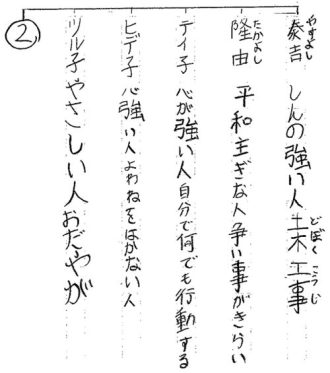 泰吉 しんの強い人 土木工事
やすよし どぼくこうじ
隆由 平和主ぎな人 争い事がきらい
たかよし
テイ子 心が強い人 自分で何でも行動する
ヒデ子 心強い人 よわねをはかない人
ツル子 やさしい人 おだやが
②